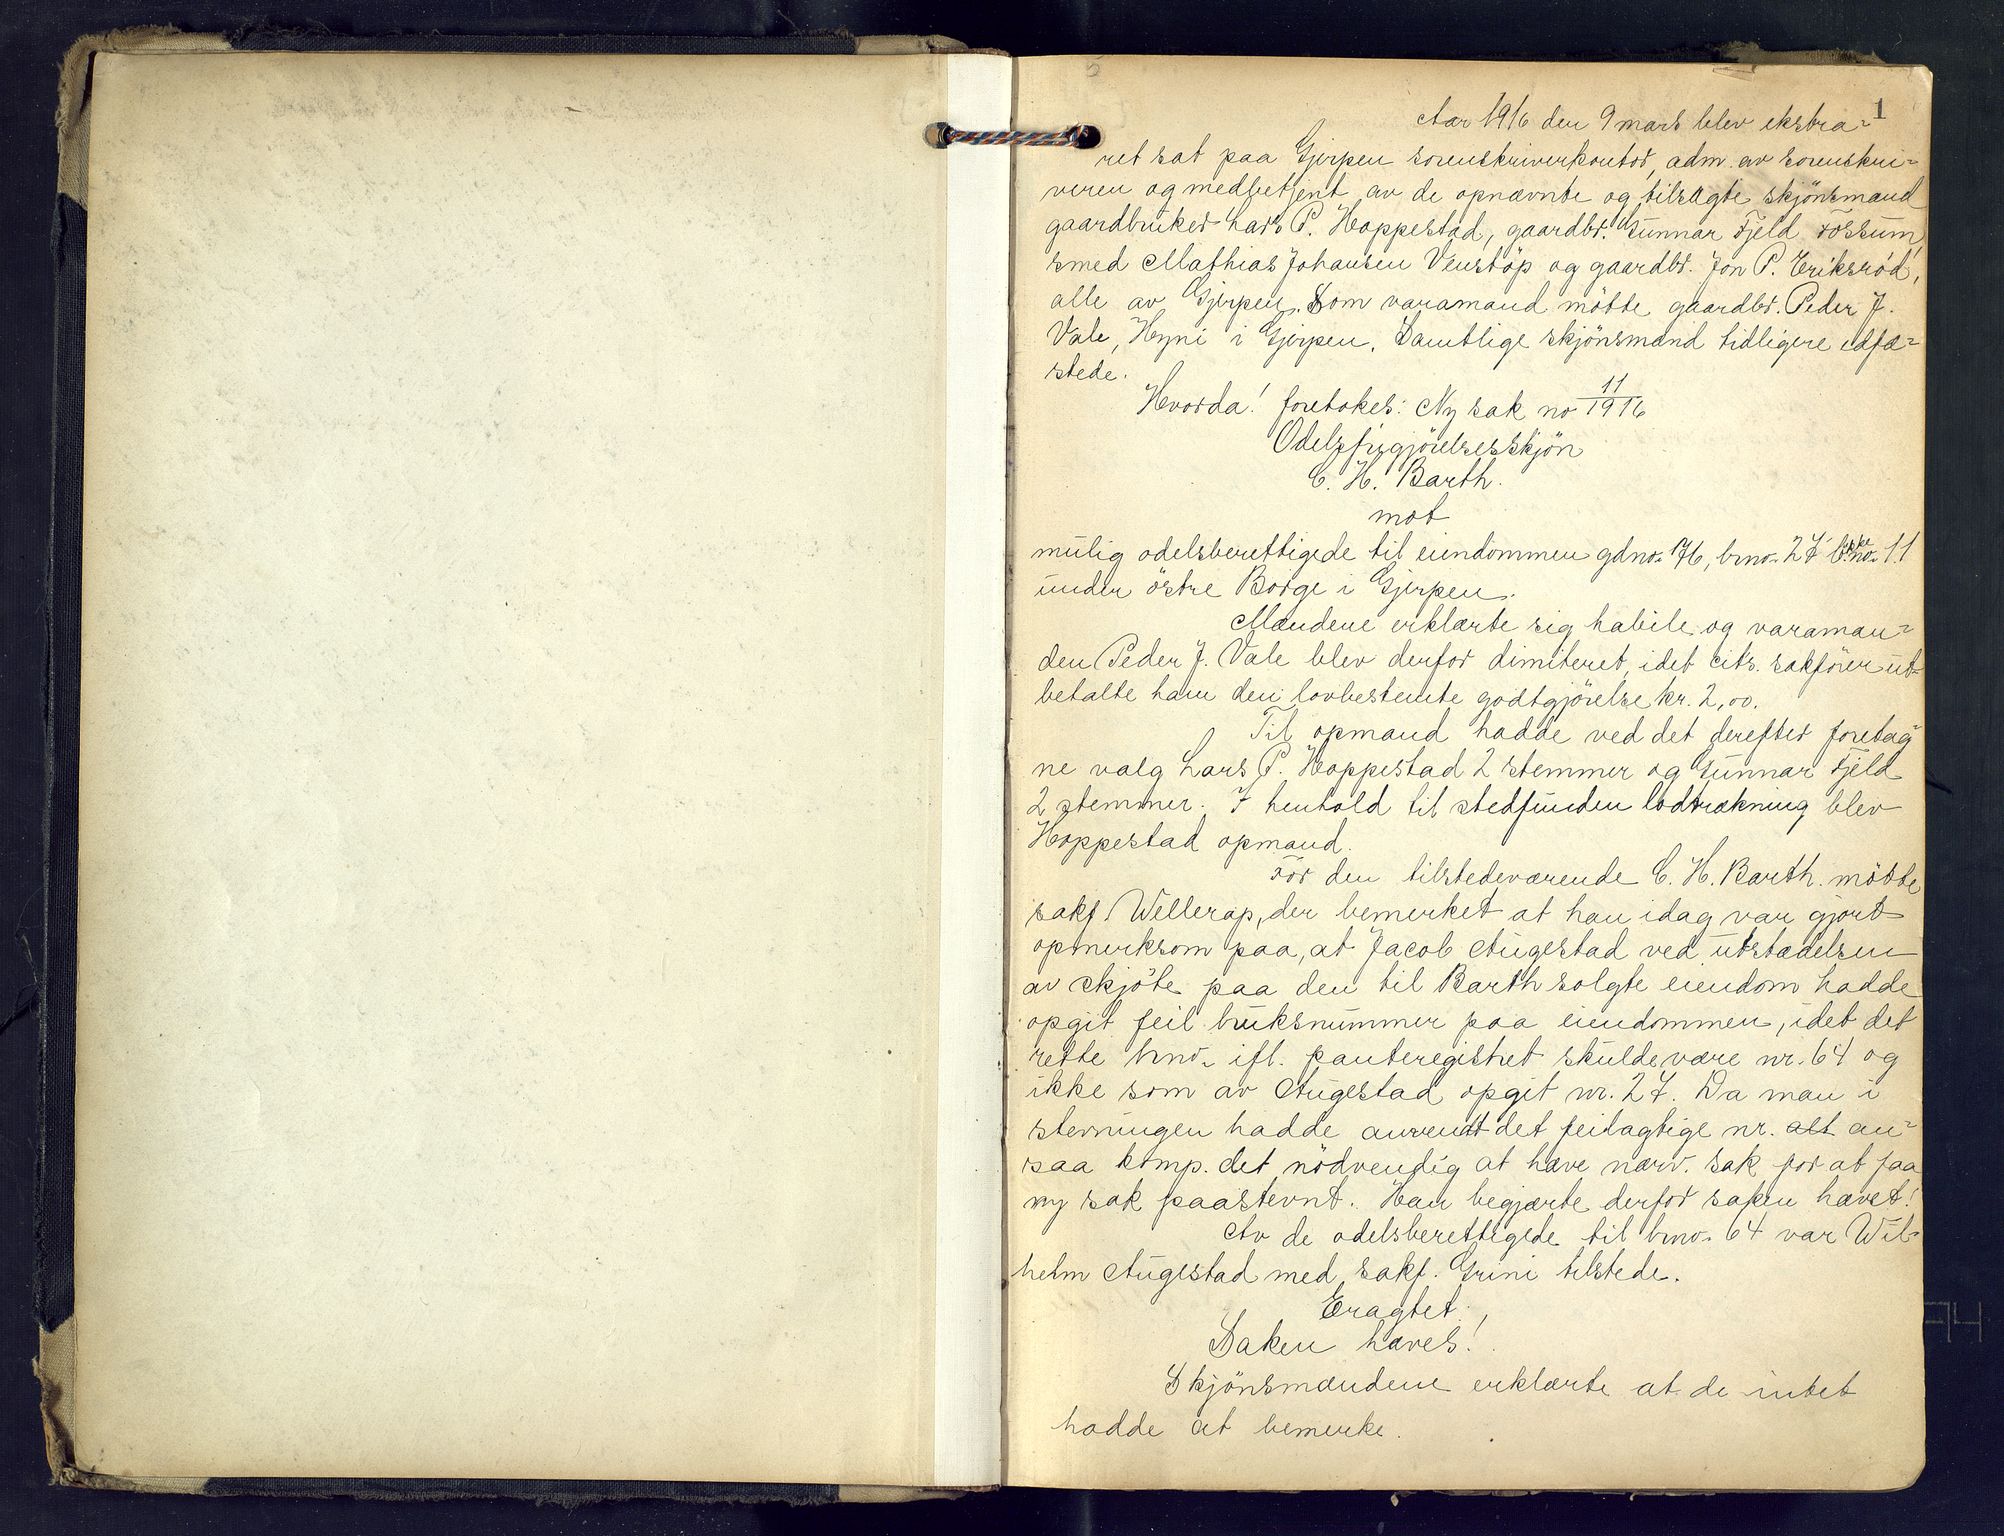 1
Aar 1916 den 9 mars blev ekstra-
ret sat paa Gjerpen sorenskriverkontor, adm. av sorenskri-
veren og medbetjent av de opnævnte og tilsagte skjönsmænd
gaardbruker Lars P. Hoppestad, gaardbr. Gunnar Fjeld Fossum,
smed Mathias Johansen Venstöp og gaardbr. Jon P. Eriksröd,
alle av Gjerpen. Som varamand mötte gaardbr. Peder J.
Vale, Hyni i Gjerpen. Samtlige skjönsmænd tidligere edfæ-
stede.
Hvorda! foretokes: Ny sak no 11/1916
Odelsfrigjörelsesskjön
C. H. Barth.
mot
mulig odelsberettigede til eiendommen gdno. 76, brno. 27 no. 11
under östre Borge i Gjerpen.
Mændene erklærte sig habile og varaman-
den Peder J. Vale blev derfor dimiteret, idet cits. sakförer ut-
betalte ham den lovbestemte godtgjörelse kr. 2,00.
Til opmand hadde ved det derefter foretag-
ne valg Lars P. Hoppestad 2 stemmer og Gunnar Fjeld
2 stemmer. I henhold til stedfunden lodtrækning blev
Hoppestad opmand.
For den tilstedeværende C. H. Barth. mötte
sakf. Wellerop, der bemerket at han idag var gjort
opmerksom paa, at Jacob Augestad ved utstædelsen
av skjöte paa den til Barth solgte eiendom hadde
opgit feil bruksnummer paa eiendommen, idet det
rette brno. ifl. panteregistret skulde være nr. 64 og
ikke som av Augestad opgit nr. 27. Da man i
stevningen hadde anvendt det feilagtige nr. alt an-
saa komp. det nödvendig at hæve nærv. sak for at faa
ny sak paastevnt. Han begjærte derfor saken hævet!
Av de odelsberettigede til brno. 64 var Wil-
helm Augestad med sakf. Grini tilstede.
Eragtet:
Saken hæves!
Skjönsmændene erklærte at de intet
hadde at bemerke.